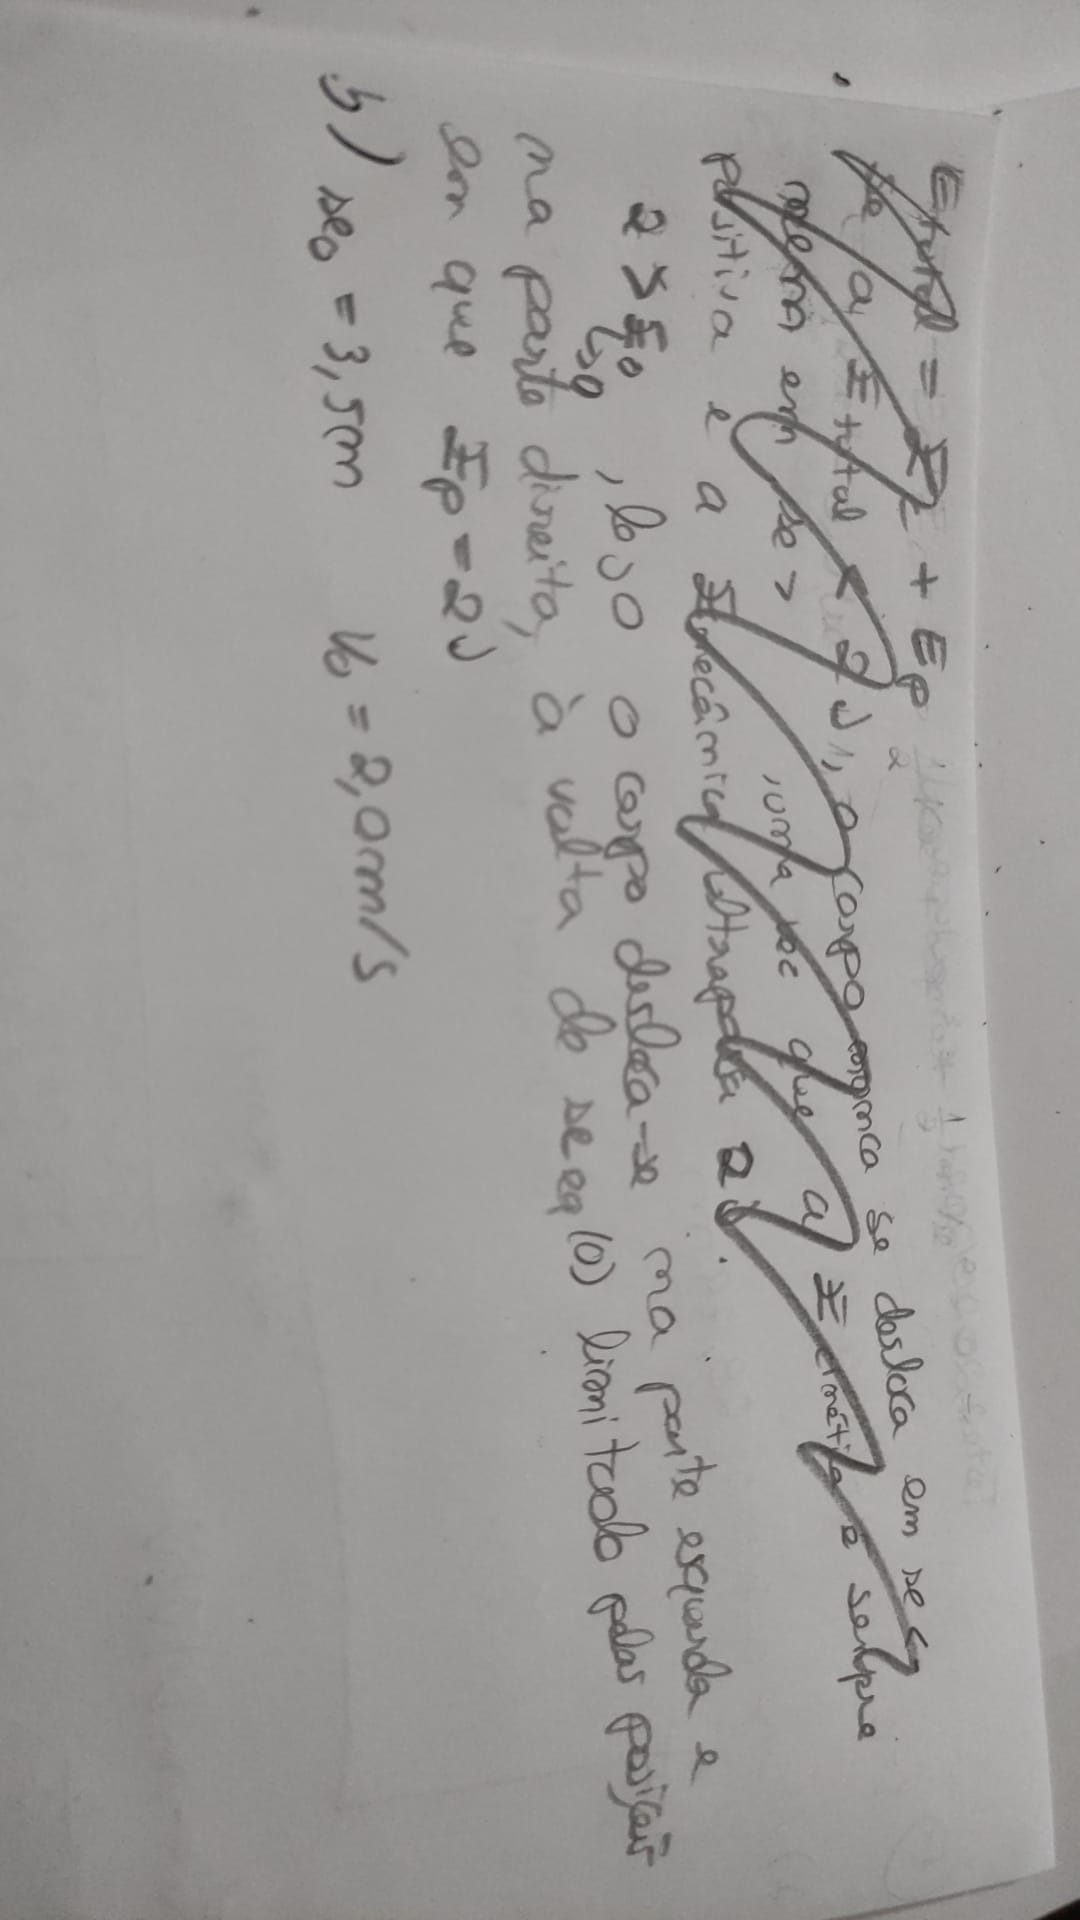 Etotal = Ec + Ep
Se a Etotal < 2J, o corpo nunca se desloca em x <
nem em x > , uma vez que a E cinética é sempre
positiva e a Emecânica ultrapassa 2J.
2 > E0 , logo o corpo desloca-se na parte esquerda e
↳0
na parte direita, à volta de xeq (0) limitado pelas posições
em que Ep = 2J
b) x0 = 3,5m V0 = 2,0m/s